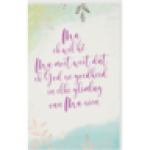 Ma
ek wil hê
Ma moet weet dat
ek God se goedheid
in elke glimlag
van Ma sien